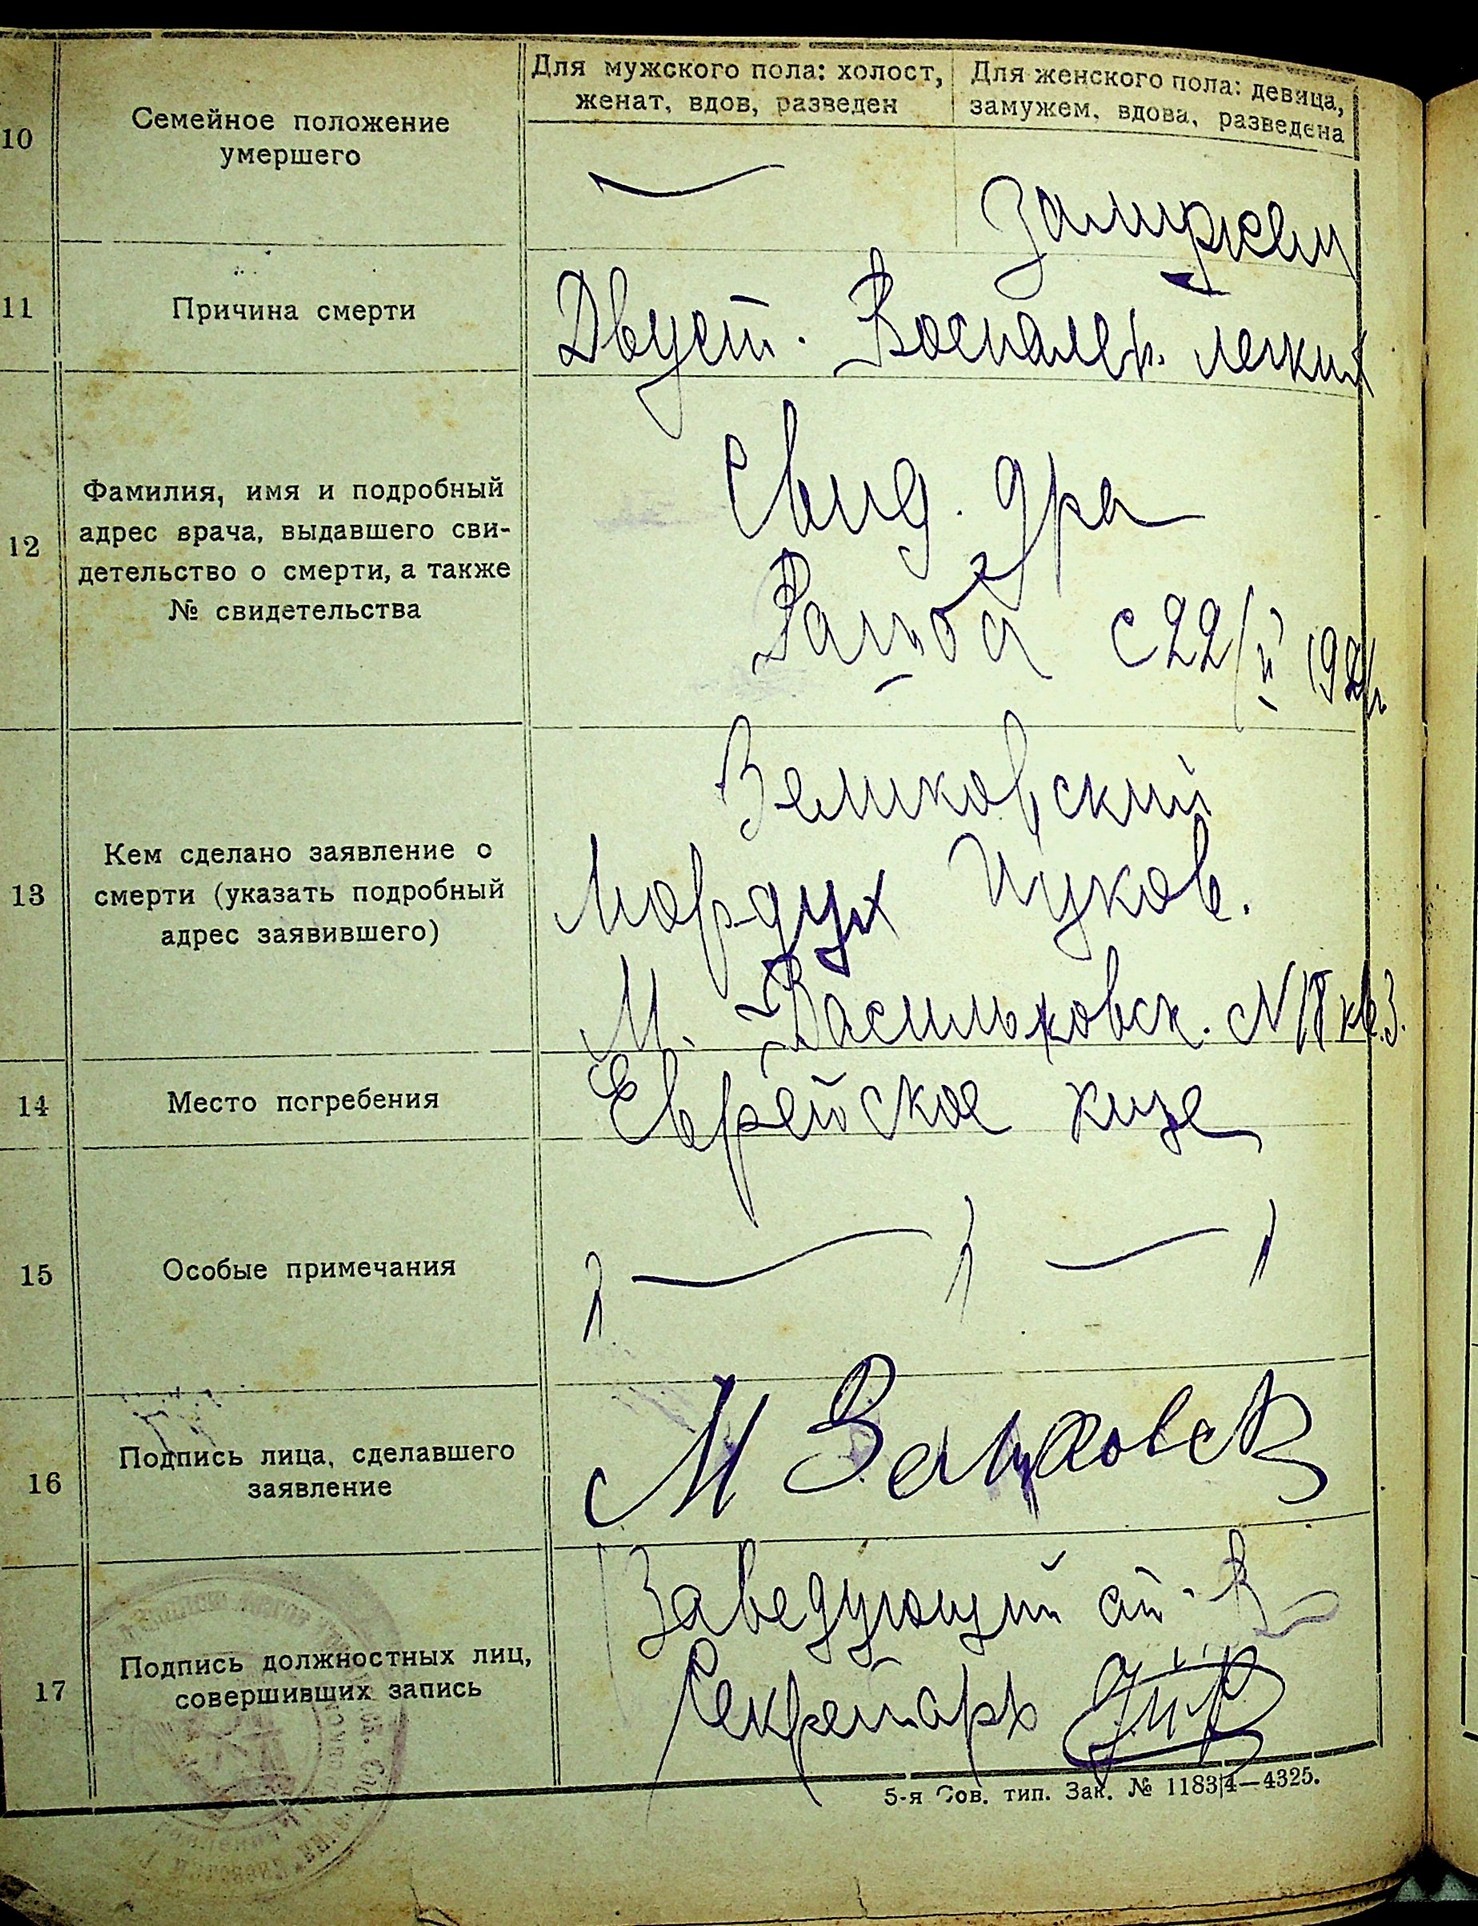 Для мужского пола: холост,
женат, вдов, разведен
Для женского пола: девица,
замужем, вдова, разведена
10
Семейное положение
умершего
замужем
11
Причина смерти
Двуст. Воспален. легких
12
Фамилия, имя и подробный
адрес врача, выдавшего сви-
детельство о смерти, а также
№ свидетельства
Свид. дра
с 22/II 192
13
Кем сделано заявление о
смерти (указать подробный
адрес заявившего)
Мордух
М. Васильковск. № кв. 3.
14
Место погребения
Еврейское
15
Особые примечания
16
Подпись лица, сделавшего
заявление
М
17
Подпись должностных лиц,
совершивших запись
Заведующий
Секретарь
5-я Сов. тип. Зак. № 11834—4325.